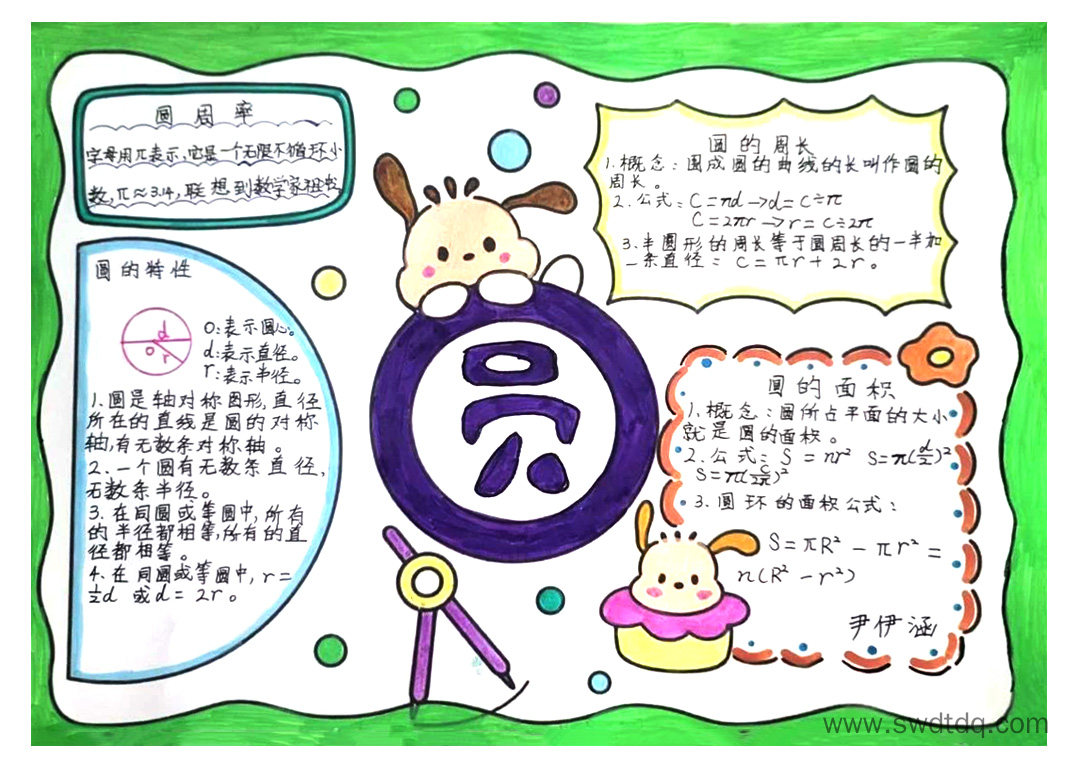 圆周率
字母用π表示,它是一个无限不循环小
数,π≈3.14,联想到数学家祖冲
圆的特性
d
o r
O:表示圆心。
d:表示直径。
r:表示半径。
1.圆是轴对称图形,直径
所在的直线是圆的对称
轴,有无数条对称轴。
2.一个圆有无数条直径,
无数条半径。
3.在同圆或等圆中,所有
的半径都相等,所有的直
径都相等。
4.在同圆或等圆中,r=
½d 或d=2r。
圆
圆的周长
1.概念:围成圆的曲线的长叫作圆的
周长。
2.公式:C=πd→d=C÷π
C=2πr→r=C÷2π
3.半圆形的周长等于圆周长的一半加
一条直径:C=πr+2r。
圆的面积
1.概念:圆所占平面的大小
就是圆的面积。
2.公式:S=πr² S=π(d/2)²
S=π(C/2π)²
3.圆环的面积公式:
S=πR²-πr²=
π(R²-r²)
尹伊涵
www.swdtdq.com